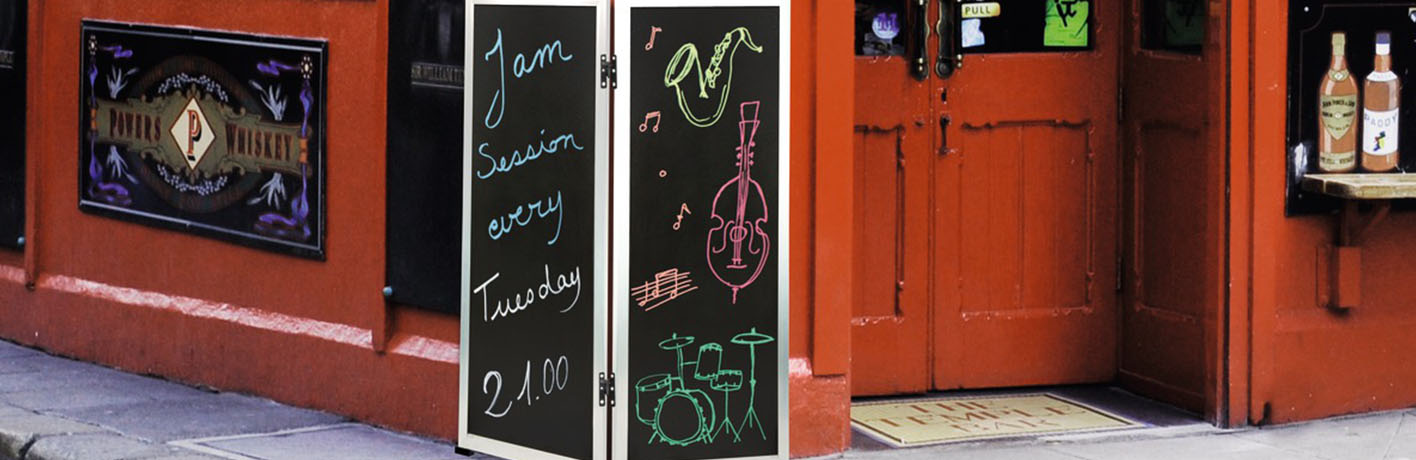 POWERS P WHISKEY
SIR WILLIAM
Jam
Session
every
Tuesday
21.00
PULL
THE
TEMPLE
BAR
PADDY